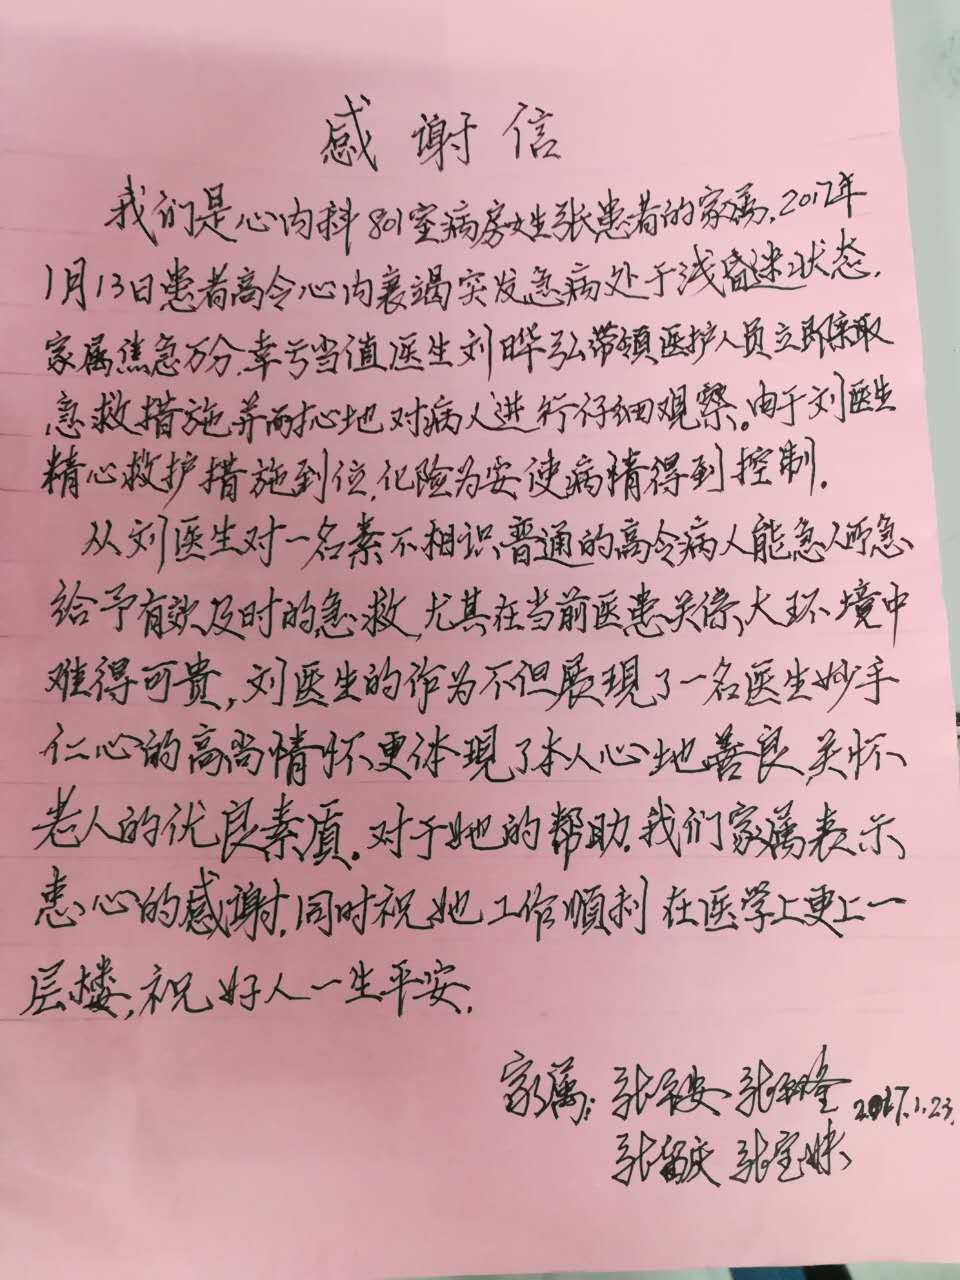 感谢信
我们是心内科801室病房女生张患者的家属,2017年
1月13日患者高令心内衰竭突发急病处于浅昏迷状态,
家属焦急万分,幸亏当值医生刘晔弘带领医护人员立即采取
急救措施并耐心地对病人进行仔细观察。由于刘医生
精心救护措施到位,化险为安使病情得到控制.
从刘医生对一名素不相识普通的高令病人能急人所急
给予有效及时的急救,尤其在当前医患关系大环境中
难得可贵,刘医生的作为不但展现了一名医生妙手
仁心的高尚情怀更体现了本人心地善良,关怀
老人的优良素质。对于她的帮助.我们家属表示
衷心的感谢.同时祝她工作顺利在医学上更上一
层楼,祝好人一生平安.
家属:张 安 张 2017.1.23.
张 庆 张宝妹